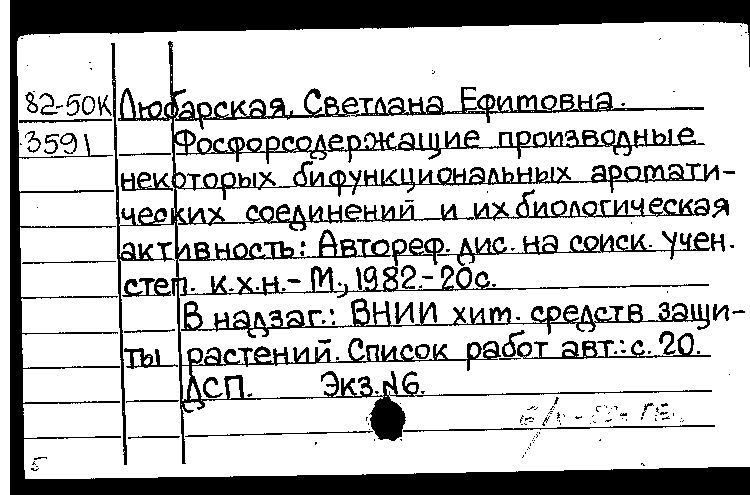 82-50К Любарская, Светлана Ефимовна.
3591 Фосфорсодержащие производные
некоторых бифункциональных аромати-
ческих соединений и их биологическая
активность: Автореф. дис. на соиск. учен.
степ. к.х.н.- М., 1982.-20с.
В надзаг.: ВНИИ хим. средств защи-
ты растений. Список работ авт.: с. 20.
ДСП. Экз.№6.
5